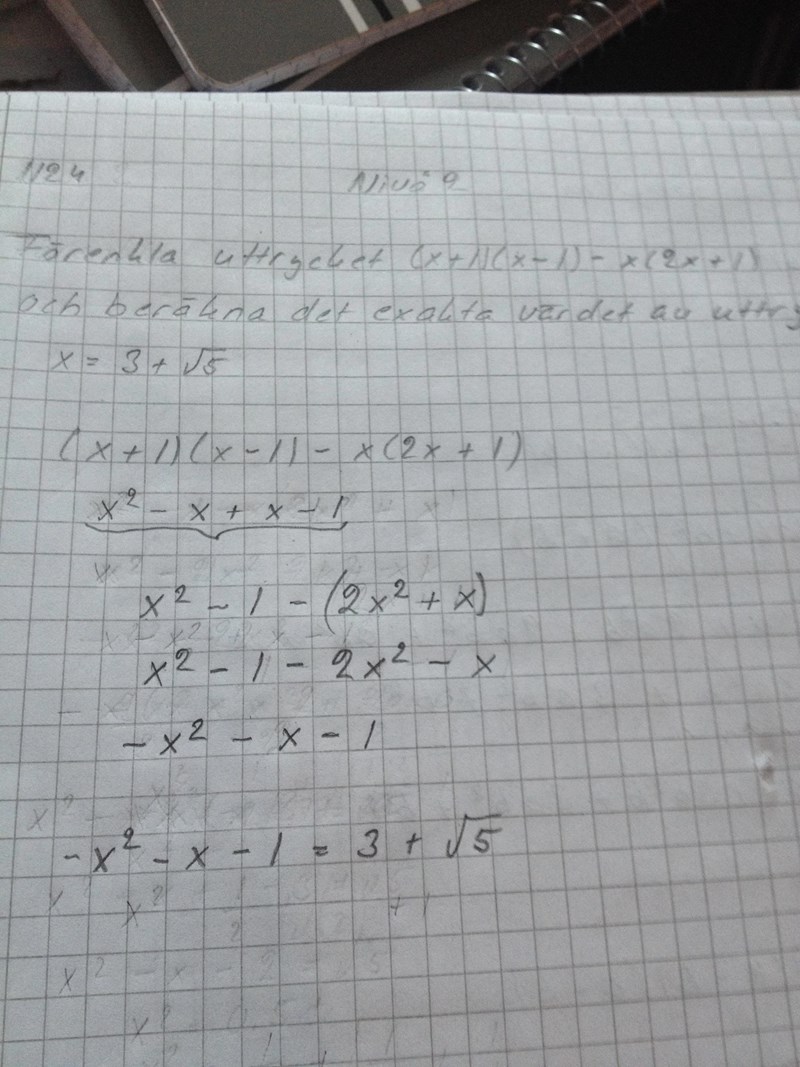 N24 Nivå 9
Förenkla uttrycket (x+1)(x-1) - x(2x+1)
och beräkna det exakta värdet av
x = 3 + √5
(x+1)(x-1) - x(2x+1)
x² - x + x - 1
x² - 1 - (2x² + x)
x² - 1 - 2x² - x
-x² - x - 1
-x² - x - 1 = 3 + √5